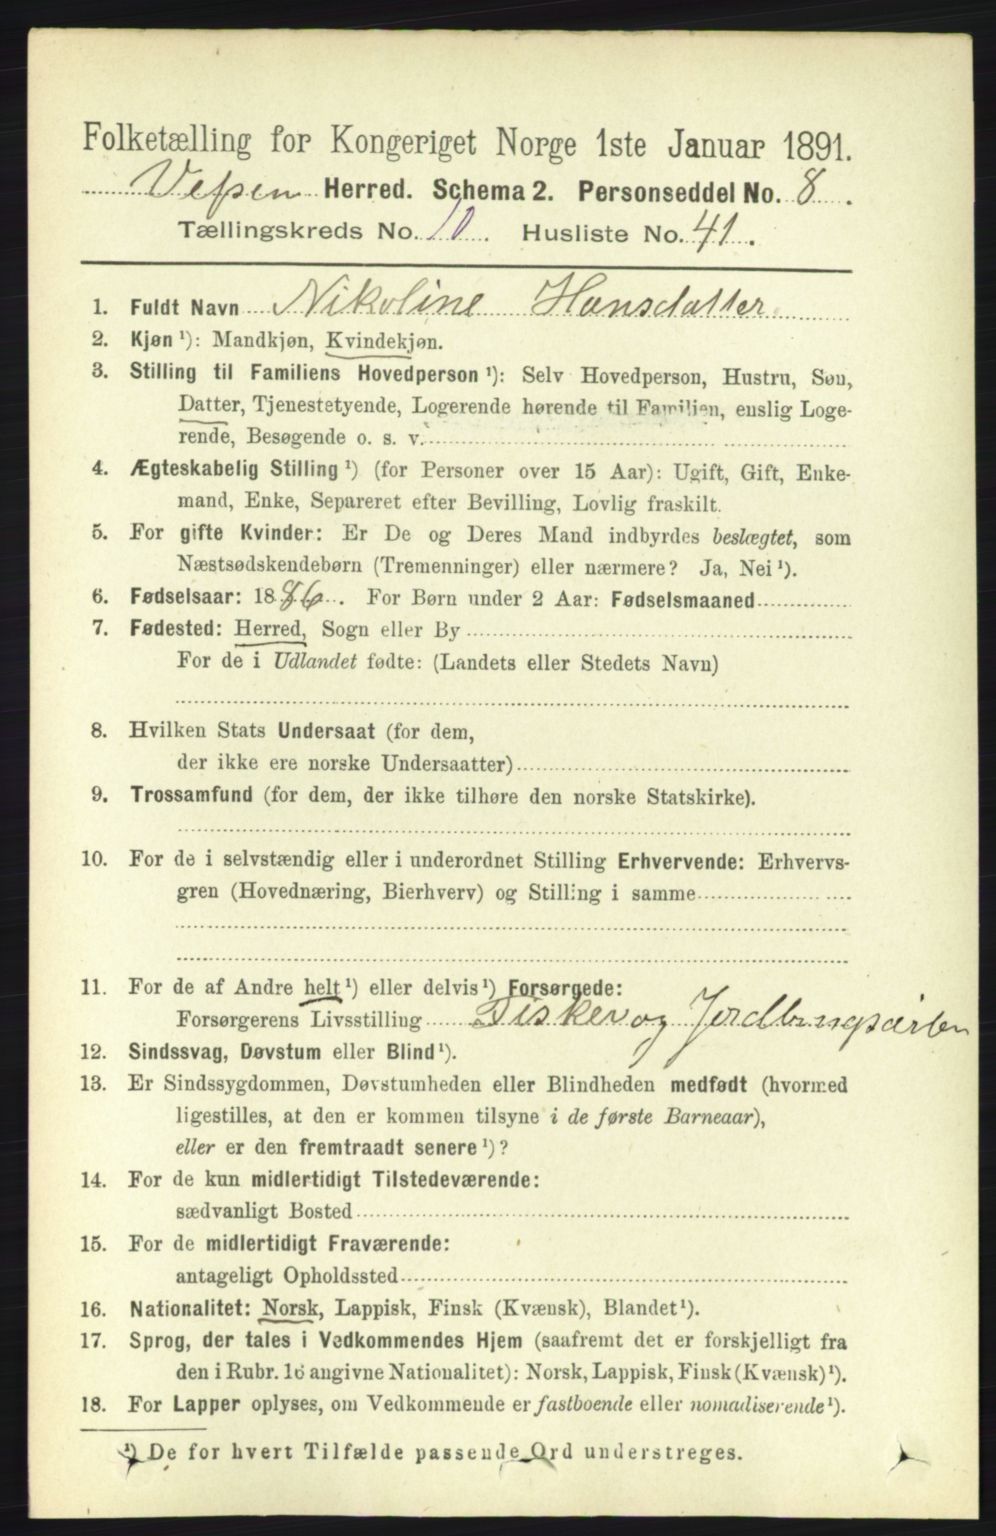 Folketælling for Kongeriget Norge 1ste Januar 1891.
Vefsen Herred. Schema 2. Personseddel No. 8.
Tællingskreds No. 10. Husliste No. 41.
1. Fuldt Navn Nikoline Hansdatter
2. Kjøn ¹): Mandkjøn, Kvindekjøn.
3. Stilling til Familiens Hovedperson ¹): Selv Hovedperson, Hustru, Søn,
Datter, Tjenestetyende, Logerende hørende til Familien, enslig Loge-
rende, Besøgende o. s. v.
4. Ægteskabelig Stilling ¹) (for Personer over 15 Aar): Ugift, Gift, Enke-
mand, Enke, Separeret efter Bevilling, Lovlig fraskilt.
5. For gifte Kvinder: Er De og Deres Mand indbyrdes beslægtet, som
Næstsødskendebørn (Tremenninger) eller nærmere? Ja, Nei ¹).
6. Fødselsaar: 1886. For Børn under 2 Aar: Fødselsmaaned
7. Fødested: Herred, Sogn eller By
For de i Udlandet fødte: (Landets eller Stedets Navn)
8. Hvilken Stats Undersaat (for dem,
der ikke ere norske Undersaatter)
9. Trossamfund (for dem, der ikke tilhøre den norske Statskirke).
10. For de i selvstændig eller i underordnet Stilling Erhvervende: Erhvervs-
gren (Hovednæring, Bierhverv) og Stilling i samme
11. For de af Andre helt ¹) eller delvis ¹) Forsørgede:
Forsørgerens Livsstilling Fisker og Jordbrugsarben
12. Sindssvag, Døvstum eller Blind ¹).
13. Er Sindssygdommen, Døvstumheden eller Blindheden medfødt (hvormed
ligestilles, at den er kommen tilsyne i de første Barneaar),
eller er den fremtraadt senere ¹)?
14. For de kun midlertidigt Tilstedeværende:
sædvanligt Bosted
15. For de midlertidigt Fraværende:
antageligt Opholdssted
16. Nationalitet: Norsk, Lappisk, Finsk (Kvænsk), Blandet ¹).
17. Sprog, der tales i Vedkommendes Hjem (saafremt det er forskjelligt fra
den i Rubr. 16 angivne Nationalitet): Norsk, Lappisk, Finsk (Kvænsk) ¹).
18. For Lapper oplyses, om Vedkommende er fastboende eller nomadiserende ¹).
¹) De for hvert Tilfælde passende Ord understreges.